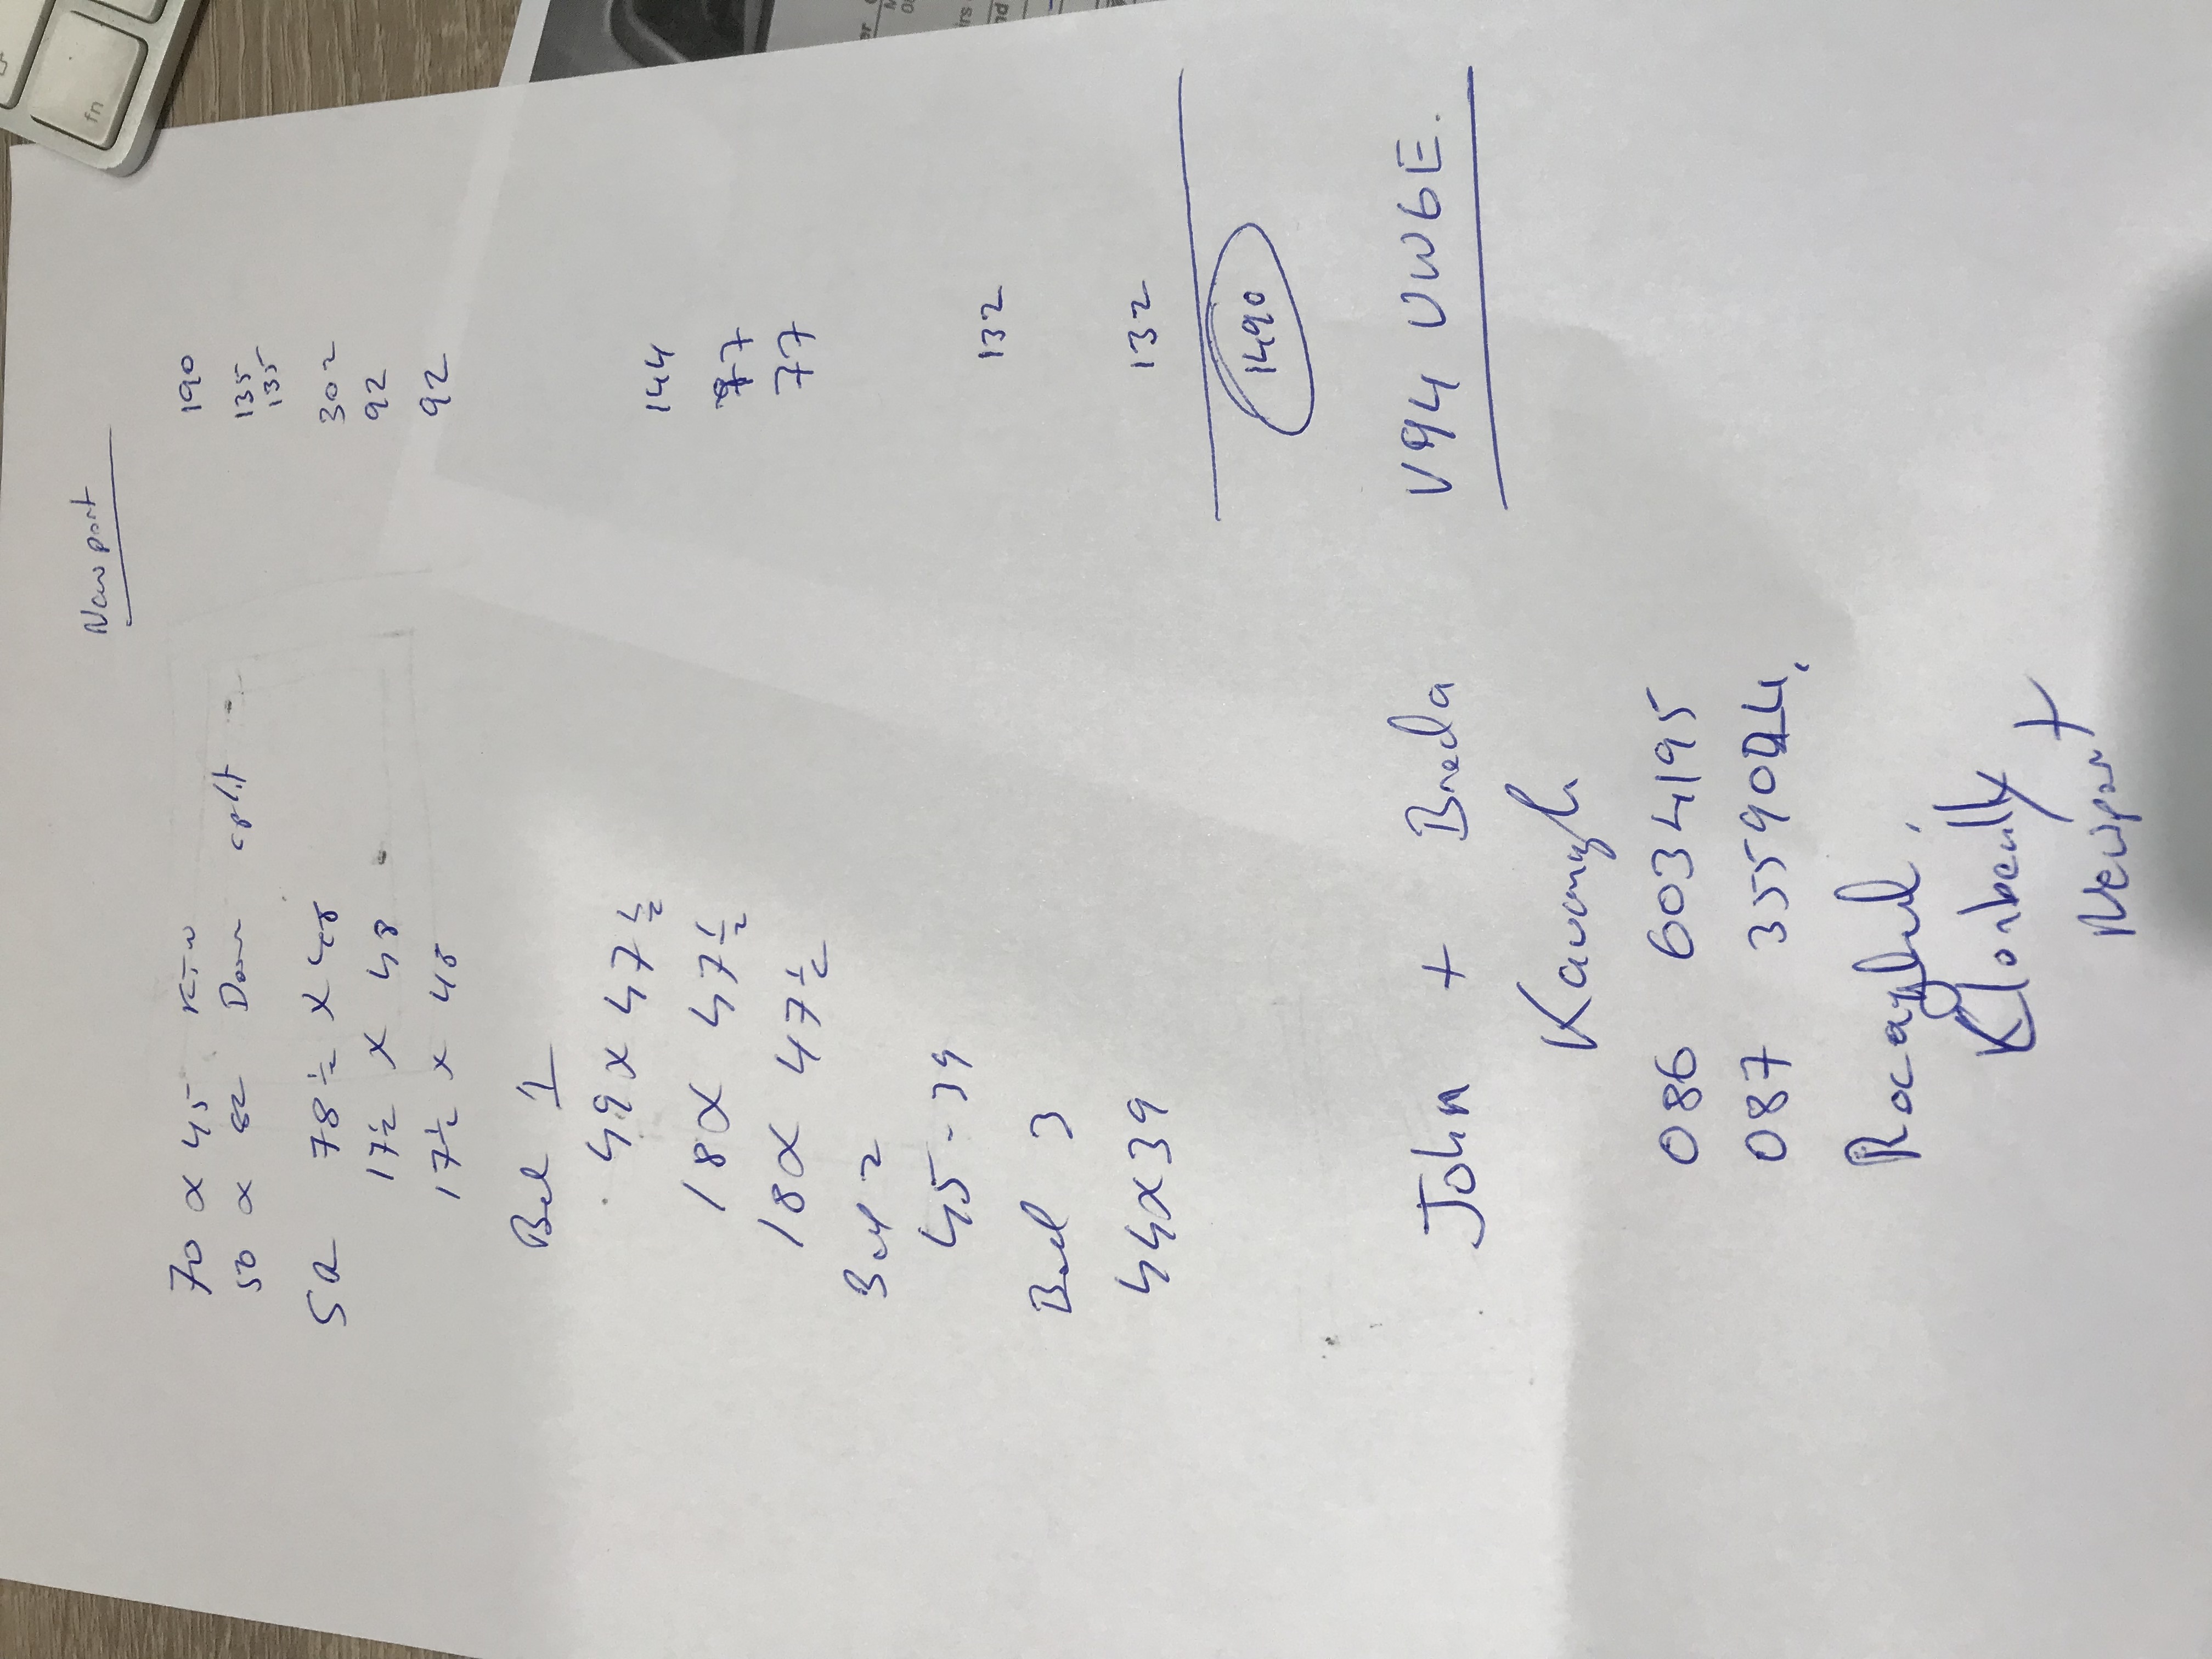 Newport
70 x 45 Kitn 190
50 x 82 Door split 135
135
SR 78½ x 48 302
17½ x 48 92
17½ x 48 92
Bed 1
49 x 47½ 144
18 x 47½ 77
18 x 47½ 77
Bed 2
45-39 132
Bed 3
44x39 132
1490
John + Breda V94 UW6E.
Kavanagh
086 6034195
087 3559024.
Newport
fn